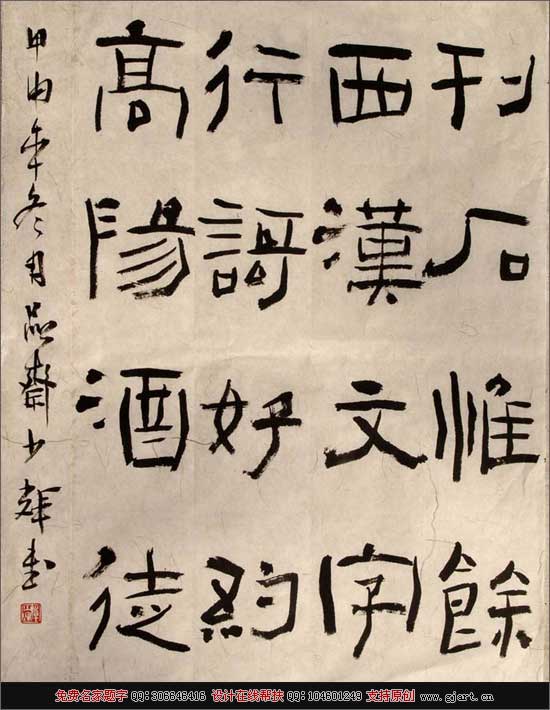 刊石惟餘
西漢文字
行謌好約
高陽酒徒
甲申年冬月品齋少輝書
免费名家题字 QQ:306646416 设计在线帮扶 QQ:104601249 支持原创 www.gjart.cn